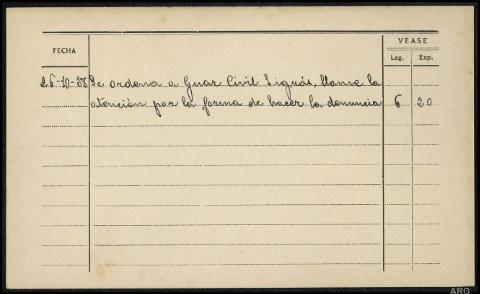 VEASE
FECHA
Leg. Exp.
26-10-38 Se ordena a Guar Civil Sigüés, llame la
atención por la forma de hacer la denuncia 6 20
ARG